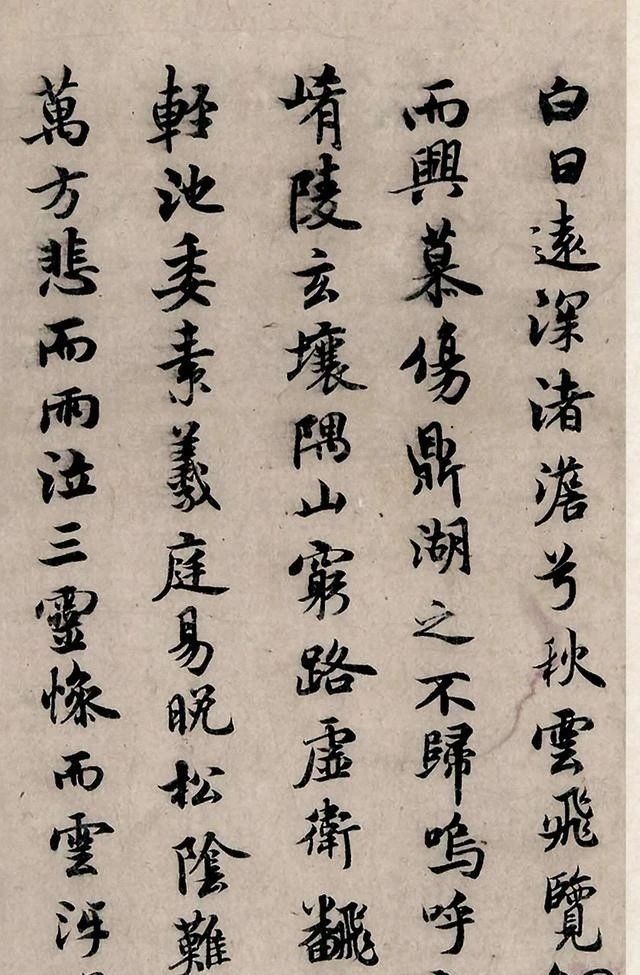 白日遠深渚澹兮秋雲飛覽
而興慕傷鼎湖之不歸嗚呼
崤陵玄壤隅山窮路虛衛飜
軽池委素羲庭易晚松陰難
萬方悲而雨泣三靈慘而雲沍